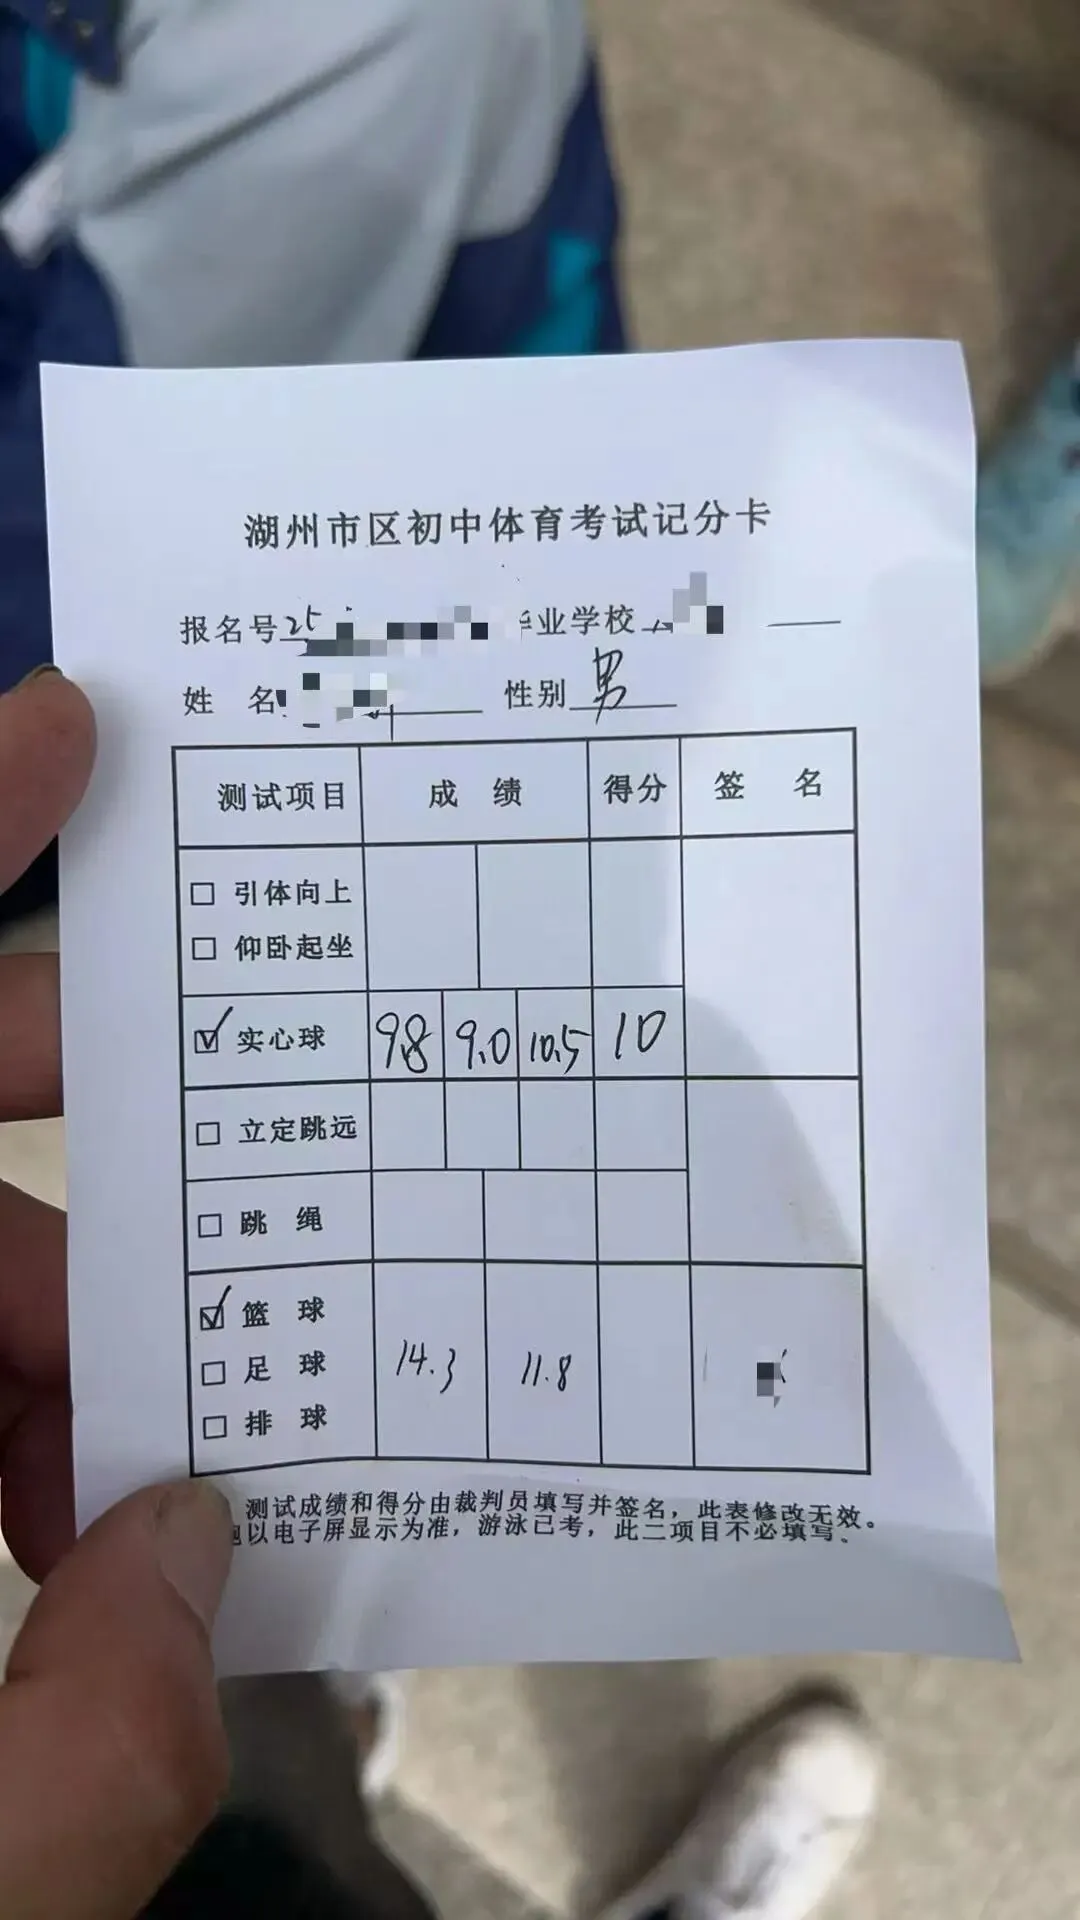 湖州市区初中体育考试记分卡
报名号25 业学校
姓 名 性别 男
测试项目 成 绩 得分 签 名
□ 引体向上
□ 仰卧起坐
☑ 实心球 9.8 9.0 10.5 10
□ 立定跳远
□ 跳 绳
☑ 篮 球
□ 足 球 14.3 11.8
□ 排 球
测试成绩和得分由裁判员填写并签名，此表修改无效。
以电子屏显示为准，游泳已考，此二项目不必填写、